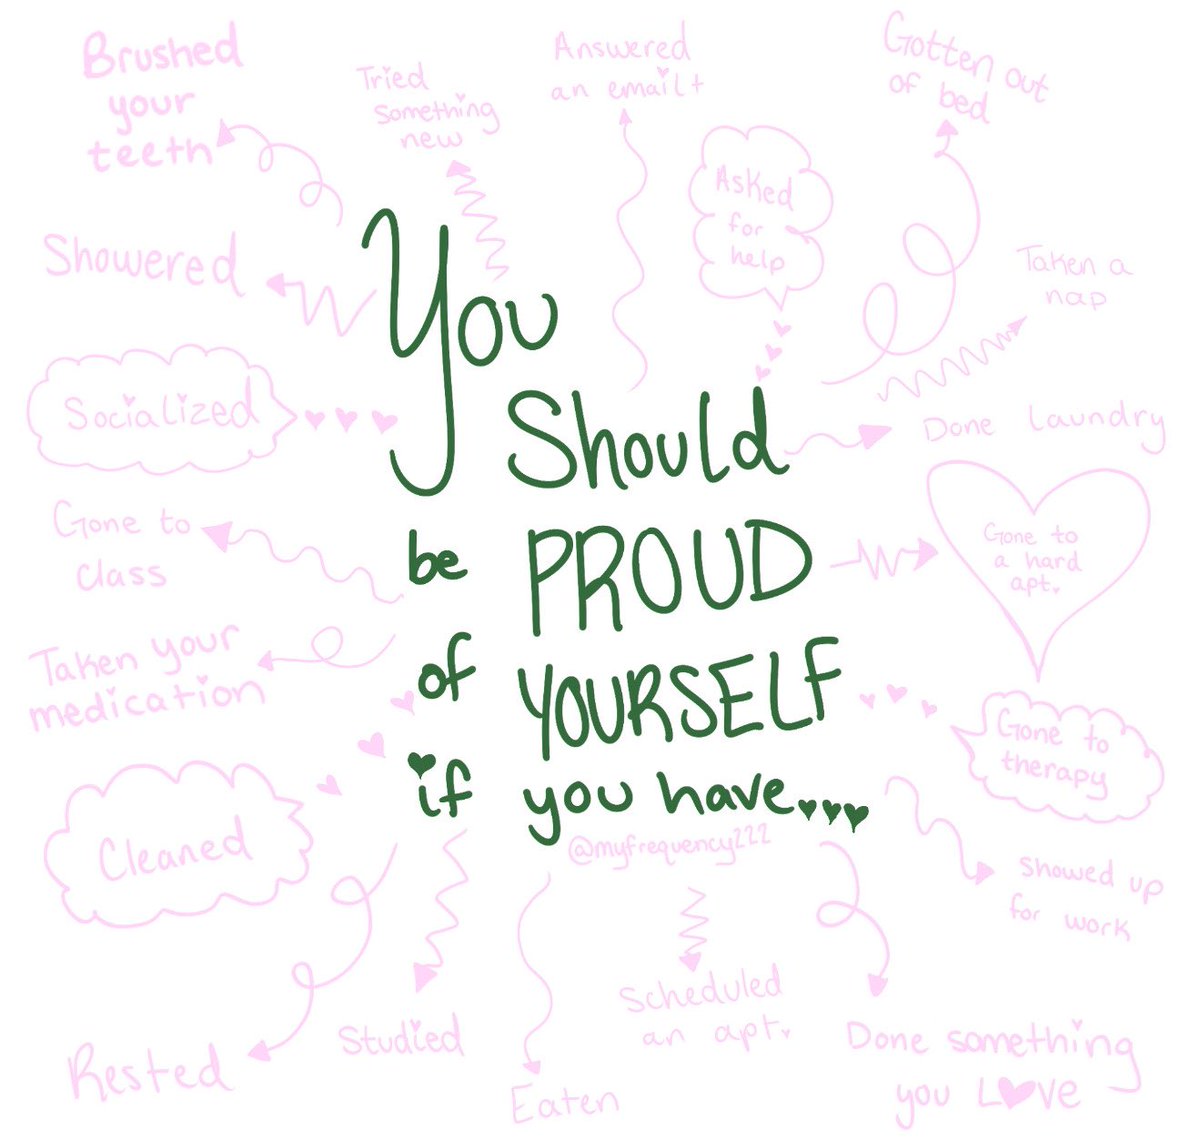 You
Should
be PROUD
of YOURSELF
if you have...
@myfrequency222
Brushed
your
teeth
Tried
something
new
Answered
an email
Asked
for
help
Gotten out
of bed
Taken a
nap
Done Laundry
Gone to
a hard
apt.
Gone to
therapy
Showed up
for work
Done something
you LOVE
Scheduled
an apt.
Eaten
Studied
Rested
Cleaned
Taken your
medication
Gone to
class
Socialized
Showered